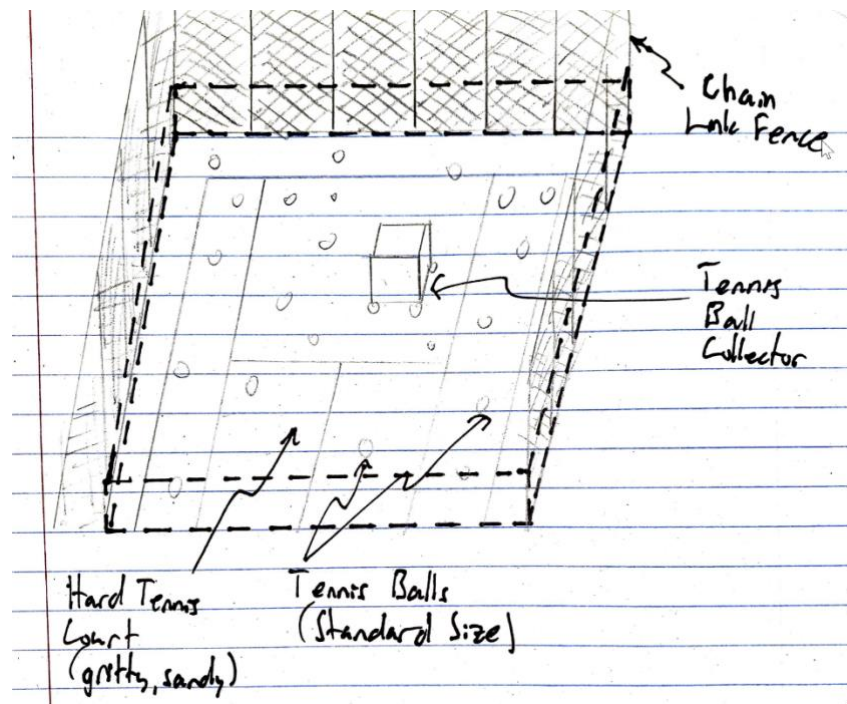 Chain
Link Fence
Tennis
Ball
Collector
Hard Tennis
Court
(gritty, sandy)
Tennis Balls
(Standard Size)